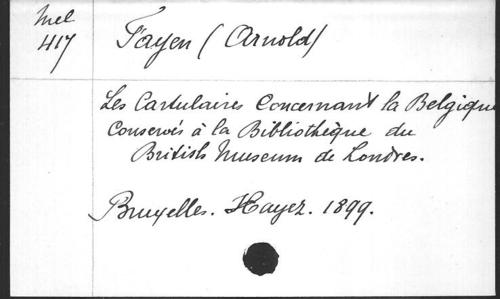 Mel
417
Fayen (Arnold)
Les Cartulaires Concernant la Belgique
Conservés à la Bibliothèque du
British Museum de Londres.
Bruxelles. Hayez. 1899.